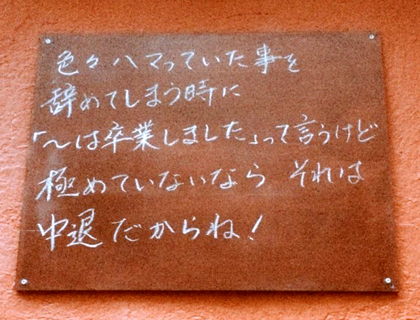 色々ハマっていた事を
辞めてしまう時に
「〜は卒業しました」って言うけど
極めていないなら それは
中退だからね!